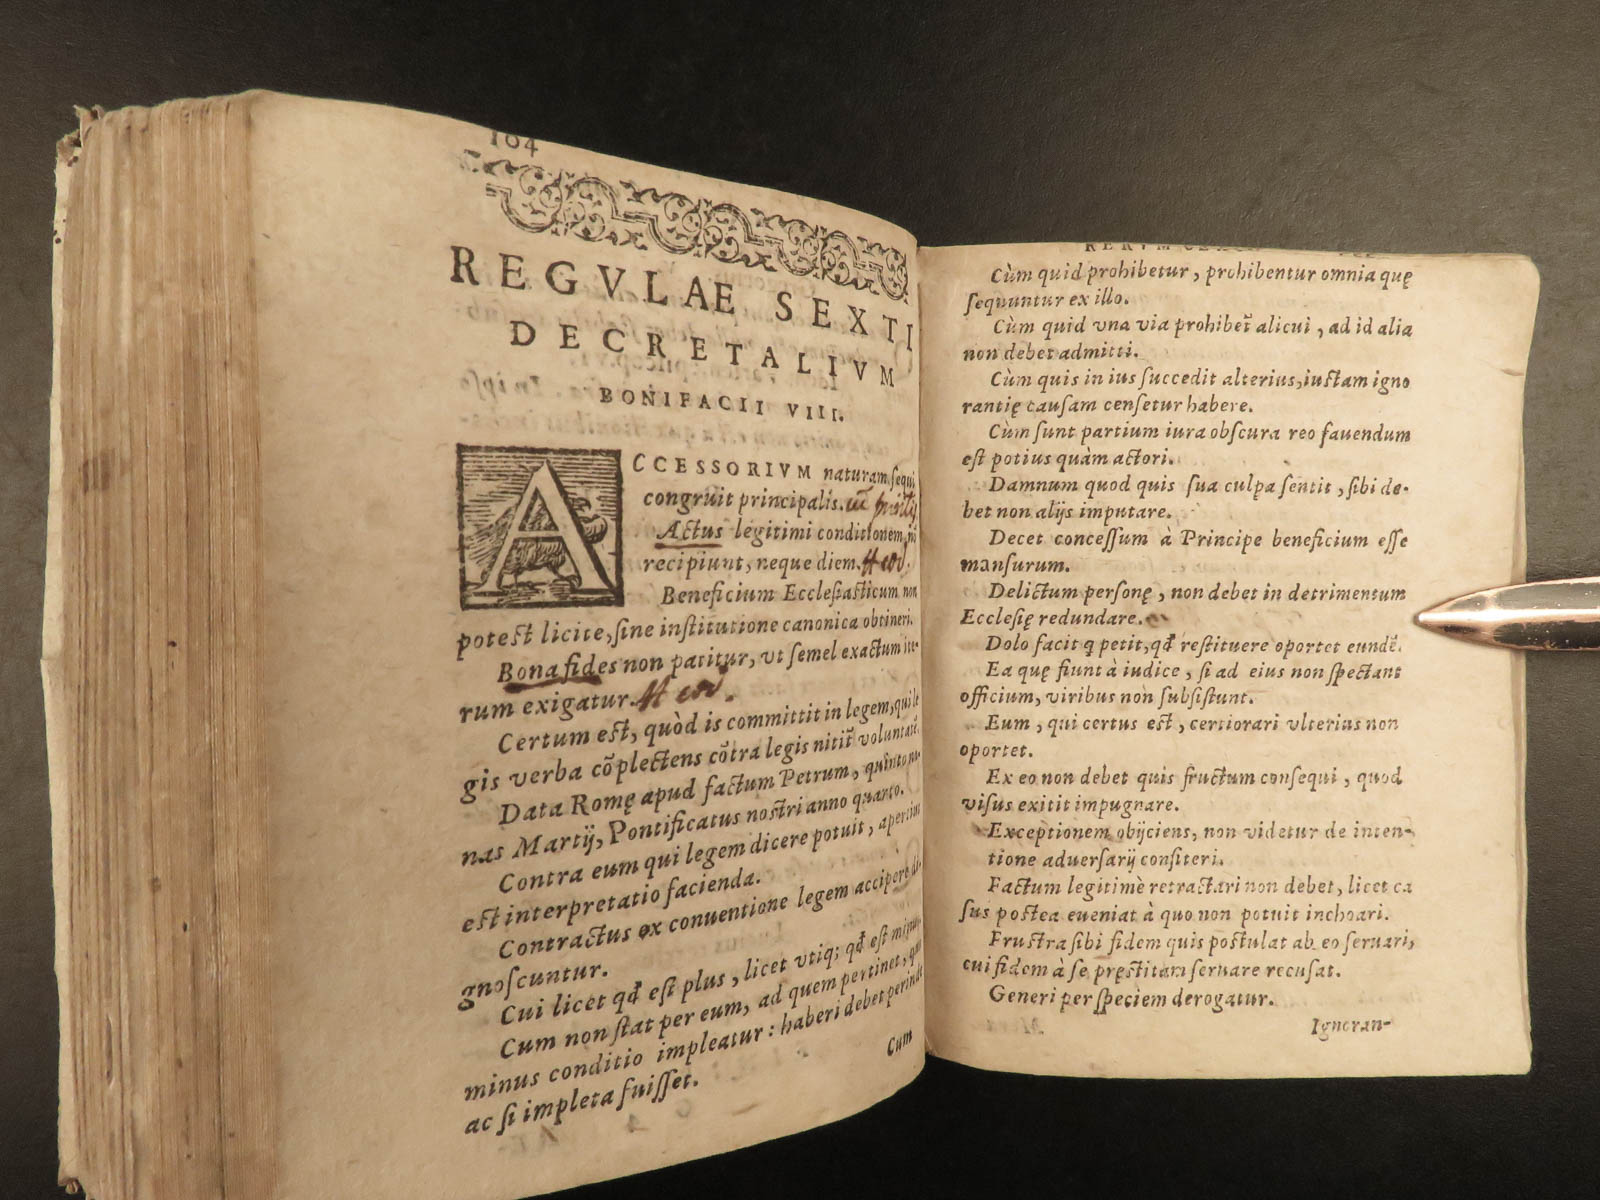 104
REGVLAE SEXTI
DECRETALIVM
BONIFACII VIII.
ACCESSORIVM naturam sequi
congruit principalis.
Actus legitimi conditionem
recipiunt, neque diem.
Beneficium Ecclesiasticum non
potest licite, sine institutione canonica obtineri.
Bona fides non patitur, vt semel exactum ite-
rum exigatur.
Certum est, quòd is committit in legem, qui le
gis verba cõplectens cõtra legis nitit̃ voluntatẽ.
Data Romę apud factum Petrum, quinto
nas Martij, Pontificatus nostri anno quarto.
Contra eum qui legem dicere potuit, apertius
est interpretatio facienda.
Contractus ex conuentione legem accipere di-
gnoscuntur.
Cui licet qđ est plus, licet vtiq; qđ est minus
Cum non stat per eum, ad quem pertinet, quo
minus conditio impleatur: haberi debet perinde
ac si impleta fuisset.
Cum
RERVM
Cùm quid prohibetur, prohibentur omnia quę
sequuntur ex illo.
Cùm quid vna via prohibet̃ alicui, ad id alia
non debet admitti.
Cùm quis in ius succedit alterius, iustam igno
rantię causam censetur habere.
Cùm sunt partium iura obscura reo fauendum
est potius quàm actori.
Damnum quod quis sua culpa sentit, sibi de-
bet non alijs imputare.
Decet concessum à Principe beneficium esse
mansurum.
Delictum personę, non debet in detrimentum
Ecclesię redundare.
Dolo facit q petit, qđ restituere oportet eundẽ.
Ea quę fiunt à iudice, si ad eius non spectant
officium, viribus non subsistunt.
Eum, qui certus est, certiorari vlterius non
oportet.
Ex eo non debet quis fructum consequi, quod
visus exitit impugnare.
Exceptionem obijciens, non videtur de inten-
tione aduersarij confiteri.
Factum legitimè retractari non debet, licet ca
sus postea eueniat à quo non potuit inchoari.
Frustra sibi fidem quis postulat ab eo seruari,
cui fidem à se pręstitam seruare recusat.
Generi per speciem derogatur.
Ignoran-